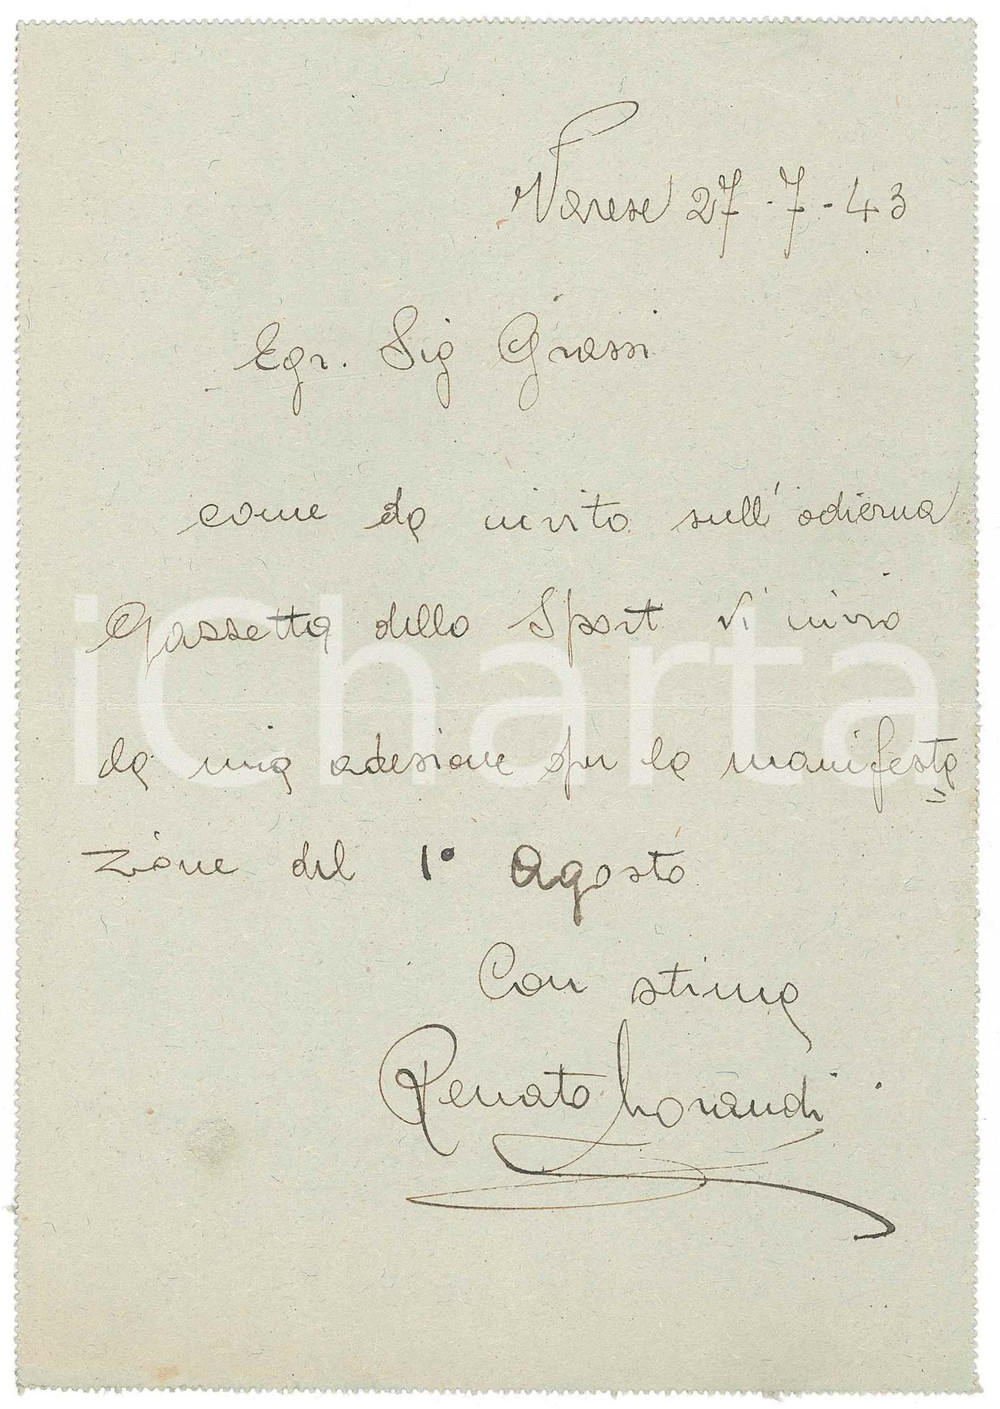 Varese 27-7-43
Egr. Sig Grassi
come da invito sull'odierna
Gazzetta dello Sport Vi invio
la mia adesione per la manifesta=
zione del 1° Agosto
Con stima
Renato Morandi
iCharta